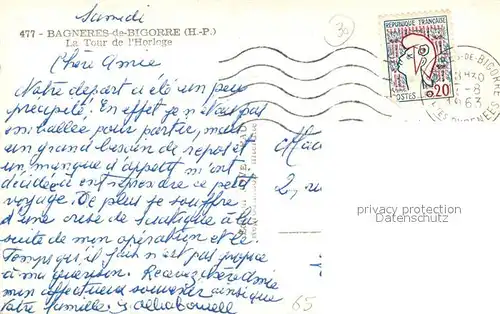 Samedi
477 - BAGNERES-de-BIGORRE (H.-P.)
La Tour de l'Horloge
Chère Amie
Notre départ a été un peu
précipité. En effet je n'étais pas
emballée pour partir, mais
un grand besoin de repos et
un manque d'appétit m'ont
décidée à entreprendre ce petit
voyage. De plus je souffre
d'une crise de sciatique à la
suite de mon opération et le
temps qu'il fait n'est pas propice
à ma guérison. Recevez chère Amie
mon affectueux souvenir ainsi que
votre famille.
REPUBLIQUE FRANÇAISE
POSTES
0,20
1963
2, ru
privacy protection
38
65